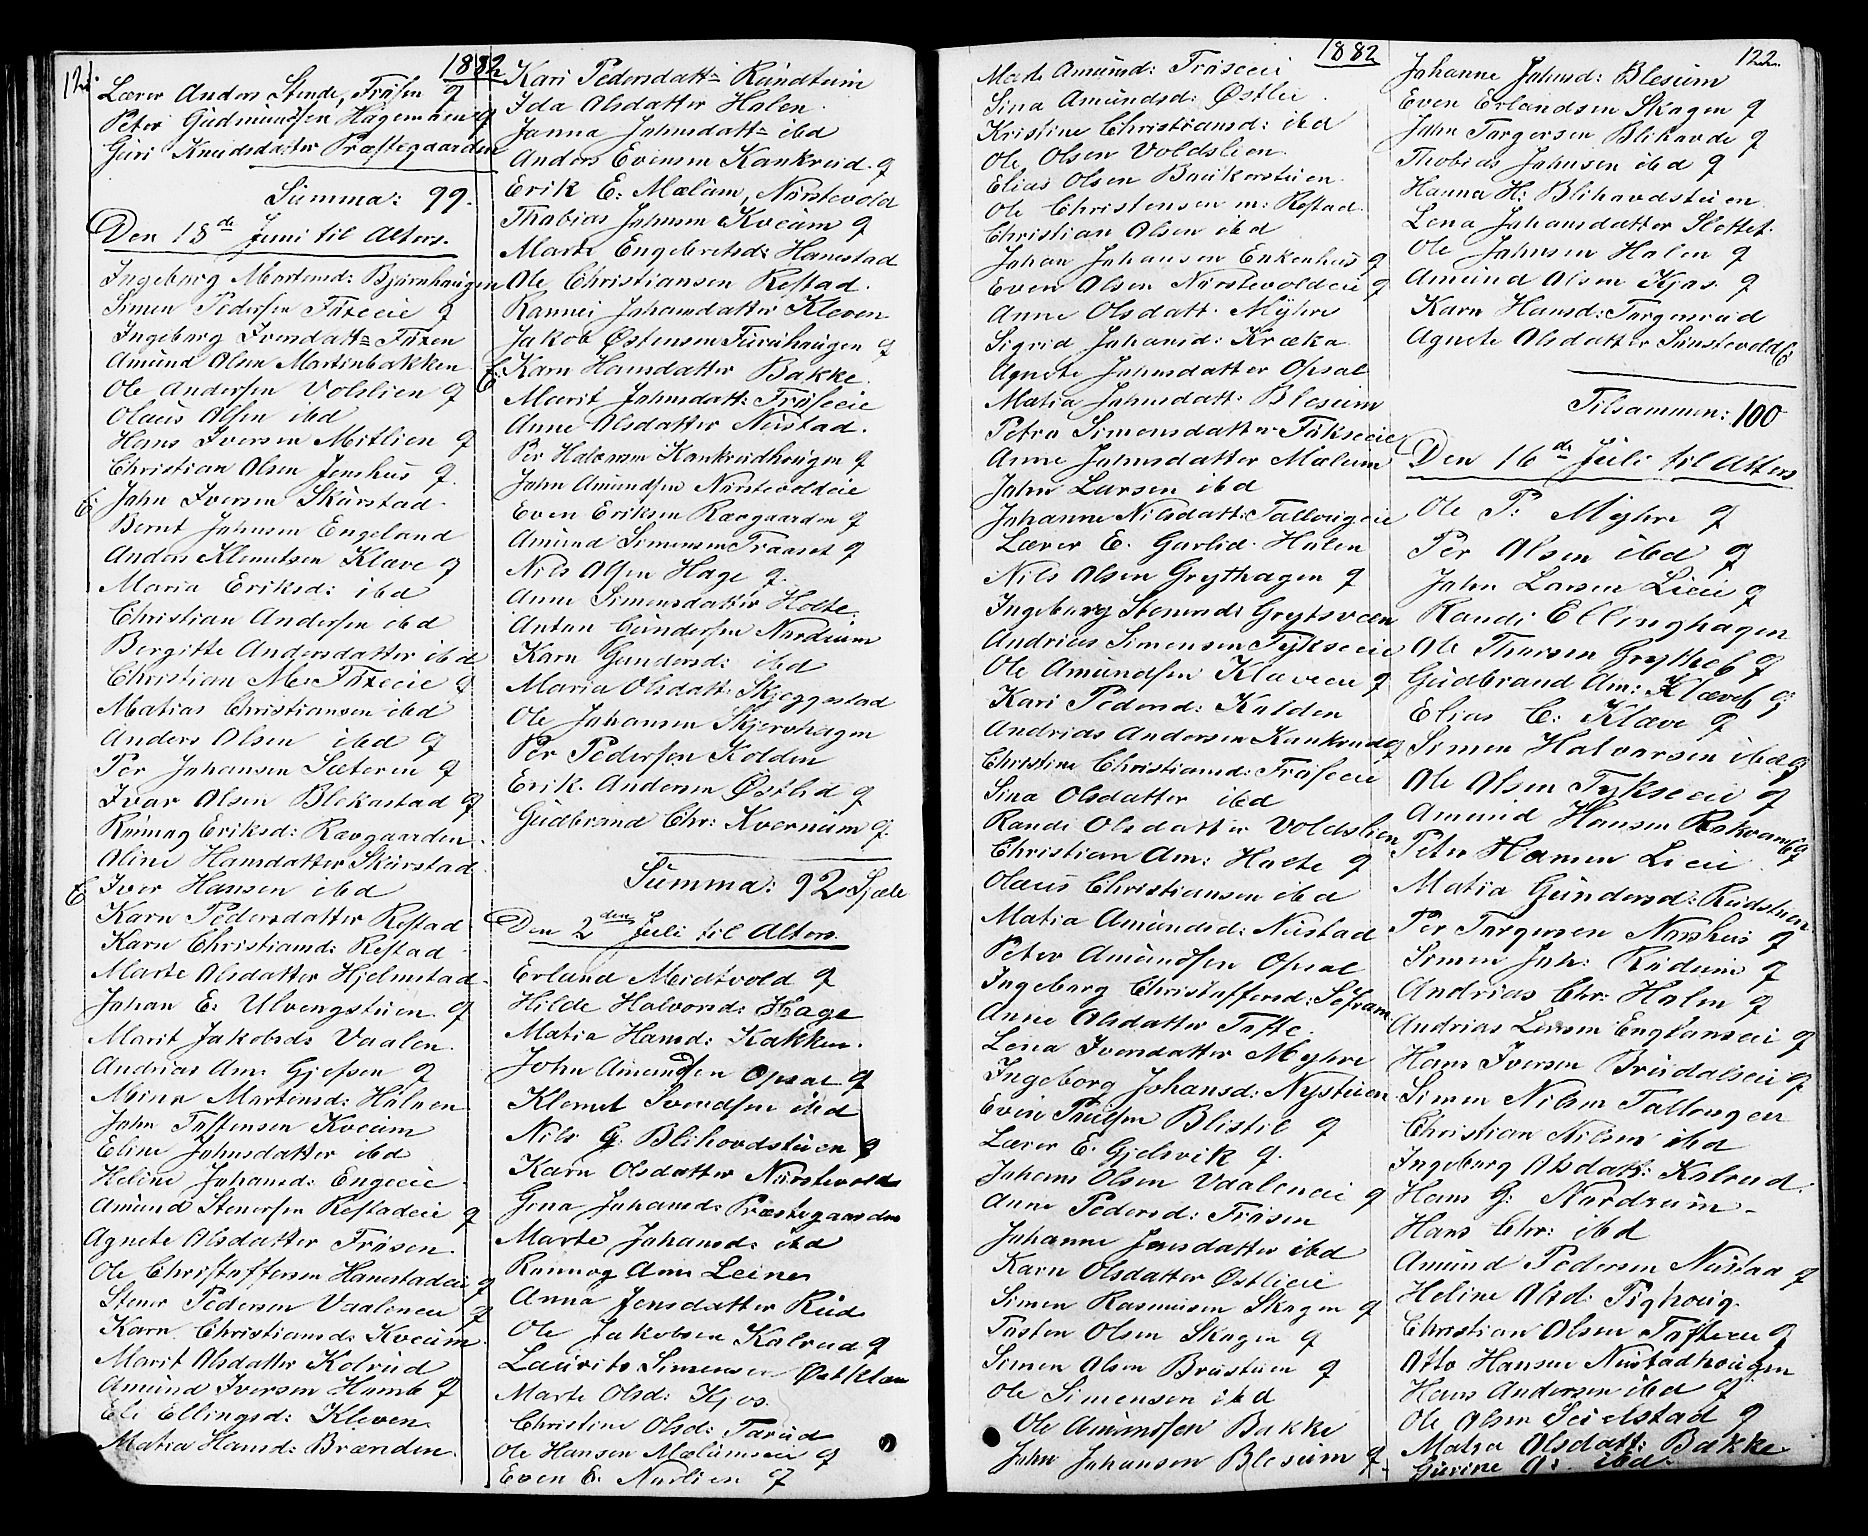 121.
1882
Lærer Anders Stende, Frøsen g
Peter Gudmundsen Hagemoen g
Guri Knudsdatter Præstegaarden
Summa: 99.
Den 18de Juni til Alters.
Ingeborg Mortensd: Bjørnhaugen
Simen Pedersen Faxeeie g
Ingeborg Iversdatt= Faxen
Amund Olsen Martinbakken
Ole Andersen Volslien g
Olaus Olsen ibd
Hans Iversen Mitlien g
Christian Olsen Jenshus g.
E: John Iversen Skurstad.
Bernt Johnsen Engeland
Anders Klemetsen Klæve g
Maria Eriksd: ibd
Christian Andersen ibd
Bergitte Andersdatter ibd
Christian M. Faxeeie g
Matias Christiansen ibd
Anders Olsen ibd g
Per Johansen Sæteren g
Ivar Olsen Blekastad g
Rønnog Eriksd: Rævgaarden
Oline Hansdatter Skurstad
E Iver Hansen ibd
Karn Pedersdatter Restad
Karn Christiansd: Restad
Marte Olsdatter Hjelmstad.
Johan E. Ulvengstuen. g
Marit Jakobsd: Vaalen.
Andrias Am: Gjefsen g
Mina Martensd: Halnen
John Tostensen Kveum
Eline Johnsdatter ibd
Heline Johansd: Engeeie
Amund Stenersen Restadeie g
Agnete Olsdatter Frøsen.
Ole Christoffersen Hanestadeie g
Stener Pedersen Vaaleneie g
Karn Christiansd: Kveum.
Marit Olsdatter Kolrud
Amund Iversen Homb g
Eli Ellingsd: Kleven.
Matia Hansd: Brænden.
Kari Pedersdatt= Rundtum
Ida Olsdatter Holen.
Janna Johnsdatt= ibd
Anders Evensen Kankrud. g
Erik E: Mælum, Nørstevold
Thobias Johnsen Kveum g
Marte Engebretsd: Hanestad
Ole Christiansen Restad.
Rannei Johansdatter Kleven
Jakob Østensen Furuhaugen g
E: Karn Hansdatter Bakke.
Marit Johnsdatt: Frøseeie
Anne Olsdatter Nustad.
Per Halvorsen Kankrudhaugen g
John Amundsen Nørstevoldeie
Even Eriksen Rævgaarden g
Amund Simensen Traaset g
Nils Olsen Hage g.
Anne Simensdatter Holte.
Anton Gundersen Nordrum
Karn Gundersd: ibd
Maria Olsdatt: Skjeggestad
Ole Johansen Skjervhagen
Per Pedersen Kolden
Erik. Andersen Østlid g
Gudbrand Chr: Kvernum g.
Summa: 92 Sjæle
Den 2den Juli til Alters.
Erland Meidtvold g
Hilde Halvorsd: Hage
Matia Hansd: Kakken.
John Amundsen Opsal g
Klemet Svendsen ibd
Nils G: Blihovdstuen g
Karn Olsdatter Nørstevold
Gena Johansd: Præstegaarden
Marte Johansd: ibd
Rønnog Am: Leine
Anna Jensdatter Rud
Ole Jakobsen Kolrud g
Laurits Simensen Østklæv
Marte Olsd: Kjos.
Christine Olsd: Farud
Ole Hansen Mælumseie g
Even E. Nørlien g
1882
Marte Amund: Frøseeie
Sina Amundsd: Østlie
Kristine Christiansd: ibd
Ole Olsen Voldslien
Elias Olsen Baukerstuen.
Ole Christensen m: Restad.
Christian Olsen ibd
Johan Johansen Enkenhus g
Even Olsen Nørstevoldeie g
Anne Olsdatt. Myhre
Sigrid Johansd: Kræka
Agnete Johnsdatter Opsal
Matia Johnsdatt: Blesum
Petra Simensdatter Fykseeie
Anne Johnsdatter Mælum
John Larsen ibd
Johanne Nilsdatt: Tallougeie
Lærer E. Garlid. Holen
Nils Olsen Grythagen g
Ingeborg Stenersd: Grytsveen
Andrias Simensen Fykseeie
Ole Amundsen Klæveeie g
Kari Pedersd: Kolden
Andrias Andersen Kankrud g
Christine Christiansd: Frøseeie
Sina Olsdatter ibd
Randi Olsdatter Voldslien
Christian Am: Holte g
Olaus Christiansen ibd
Matia Amundsd: Nustad
Peter Amundsen Opsal
Ingeborg Christoffersd: Sofram
Anne Olsdatter Tofte.
Lena Iversdatter Myhre
Ingeborg Johansd: Nystuen
Even Paulsen Blistil g
Lærer E. Gjelsvik g.
Johans Olsen Vaaleneie g
Anne Pedersd: Frøsen
Johanne Jensdatter ibd
Karn Olsdatter Østlieie
Simen Rasmussen Skogen g
Tosten Olsen Skogen g
Simen Olsen Brustuen g
Ole Simensen ibd
Ole Amundsen Bakke
John Johansen Blesum g.
122.
Johanne Johnsd: Blesum
Even Erlandsen Skogen g
John Torgersen Blihovde g
Thobias Johnsen ibd g
Hanna H: Blihovdstuen
Lena Johansdatter Slottet.
Ole Johnsen Holen g
Amund Olsen Kjos. g
Karn Hansd: Torgersrud
Agnete Olsdatter Sunstevold E
Tilsammen: 100
Den 16de Juli til Alters
Ole P: Myhre g
Per Olsen ibd g
John Larsen Lieie g
Randi Ellinghagen
Ole Thorsen Grythob g
Gudbrand Am: Klæveb g
Elias C: Klæve g
Simen Halvorsen ibd g
Ole Olsen Fykseeie g
Amund Hansen Rokvam g
Peter Hansen Lieie
Matia Gundersd: Rudstuen
Per Torgersen Norshus g
Simen Joh: Rudum g
Andrias Chr: Holen g
Andrias Larsen Englanseie g
Hans Iversen Brudalseie g
Simen Nilsen Tallougeie
Christian Nilsen ibd
Ingeborg Olsdatt: Kolrud.
Hans G: Nordrum.
Hans Chr: ibd
Amund Pedersen Nustad g
Heline Olsd: Pighoug.
Christian Olsen Tofteeie g
Otto Hansen Nustadhougen
Hans Andersen ibd g
Ole Olsen Seielstad g
Matea Olsdatt: Bakke.
Gurine O: ibd.